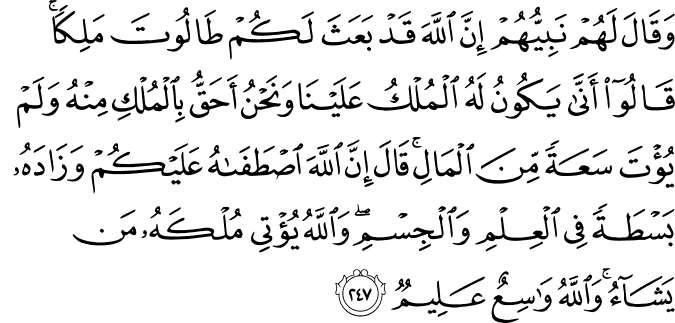 وَقَالَ لَهُمۡ نَبِيُّهُمۡ إِنَّ ٱللَّهَ قَدۡ بَعَثَ لَكُمۡ طَالُوتَ مَلِكٗاۚ
قَالُوٓاْ أَنَّىٰ يَكُونُ لَهُ ٱلۡمُلۡكُ عَلَيۡنَا وَنَحۡنُ أَحَقُّ بِٱلۡمُلۡكِ مِنۡهُ وَلَمۡ
يُؤۡتَ سَعَةٗ مِّنَ ٱلۡمَالِۚ قَالَ إِنَّ ٱللَّهَ ٱصۡطَفَىٰهُ عَلَيۡكُمۡ وَزَادَهُۥ
بَسۡطَةٗ فِي ٱلۡعِلۡمِ وَٱلۡجِسۡمِۖ وَٱللَّهُ يُؤۡتِي مُلۡكَهُۥ مَن
يَشَآءُۚ وَٱللَّهُ وَٰسِعٌ عَلِيمٞ ٢٤٧